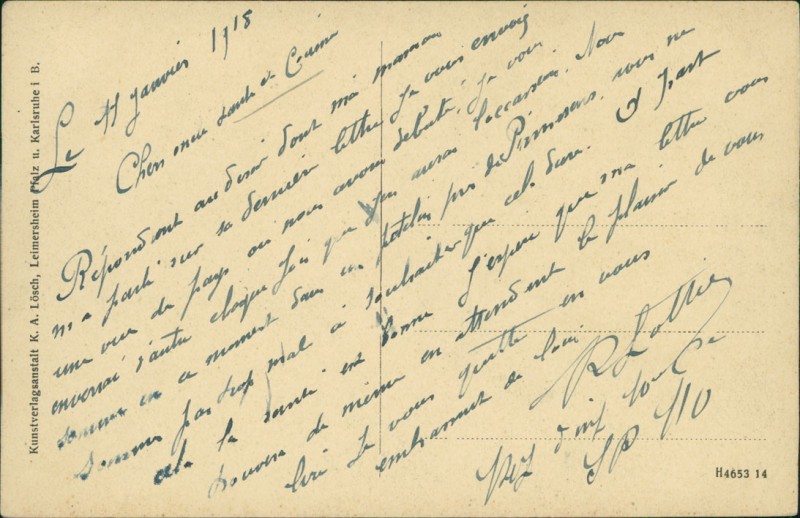 Le 11 janvier 1918
Chers oncle tante et Cousine
Répondant au désir dont ma maman
m'a parlé sur sa dernière lettre je vous envois
une vue du pays ou nous avons débuté, je vous
enverrai d'autre chaque fois que j'en aurai l'occasion. Nous
sommes en ce moment dans un patelin près de Pirmasens, nous ne
sommes pas trop mal à souhaiter que cela dure. A part
cela la santé est bonne J'espère que ma lettre vous
trouvera de même en attendant le plaisir de vous
lire Je vous quitte en vous
embrassant de loin
d'inf 10e Cie
SP 110
Kunstverlagsanstalt K. A. Lösch, Leimersheim Pfalz u. Karlsruhe i B.
H4653 14